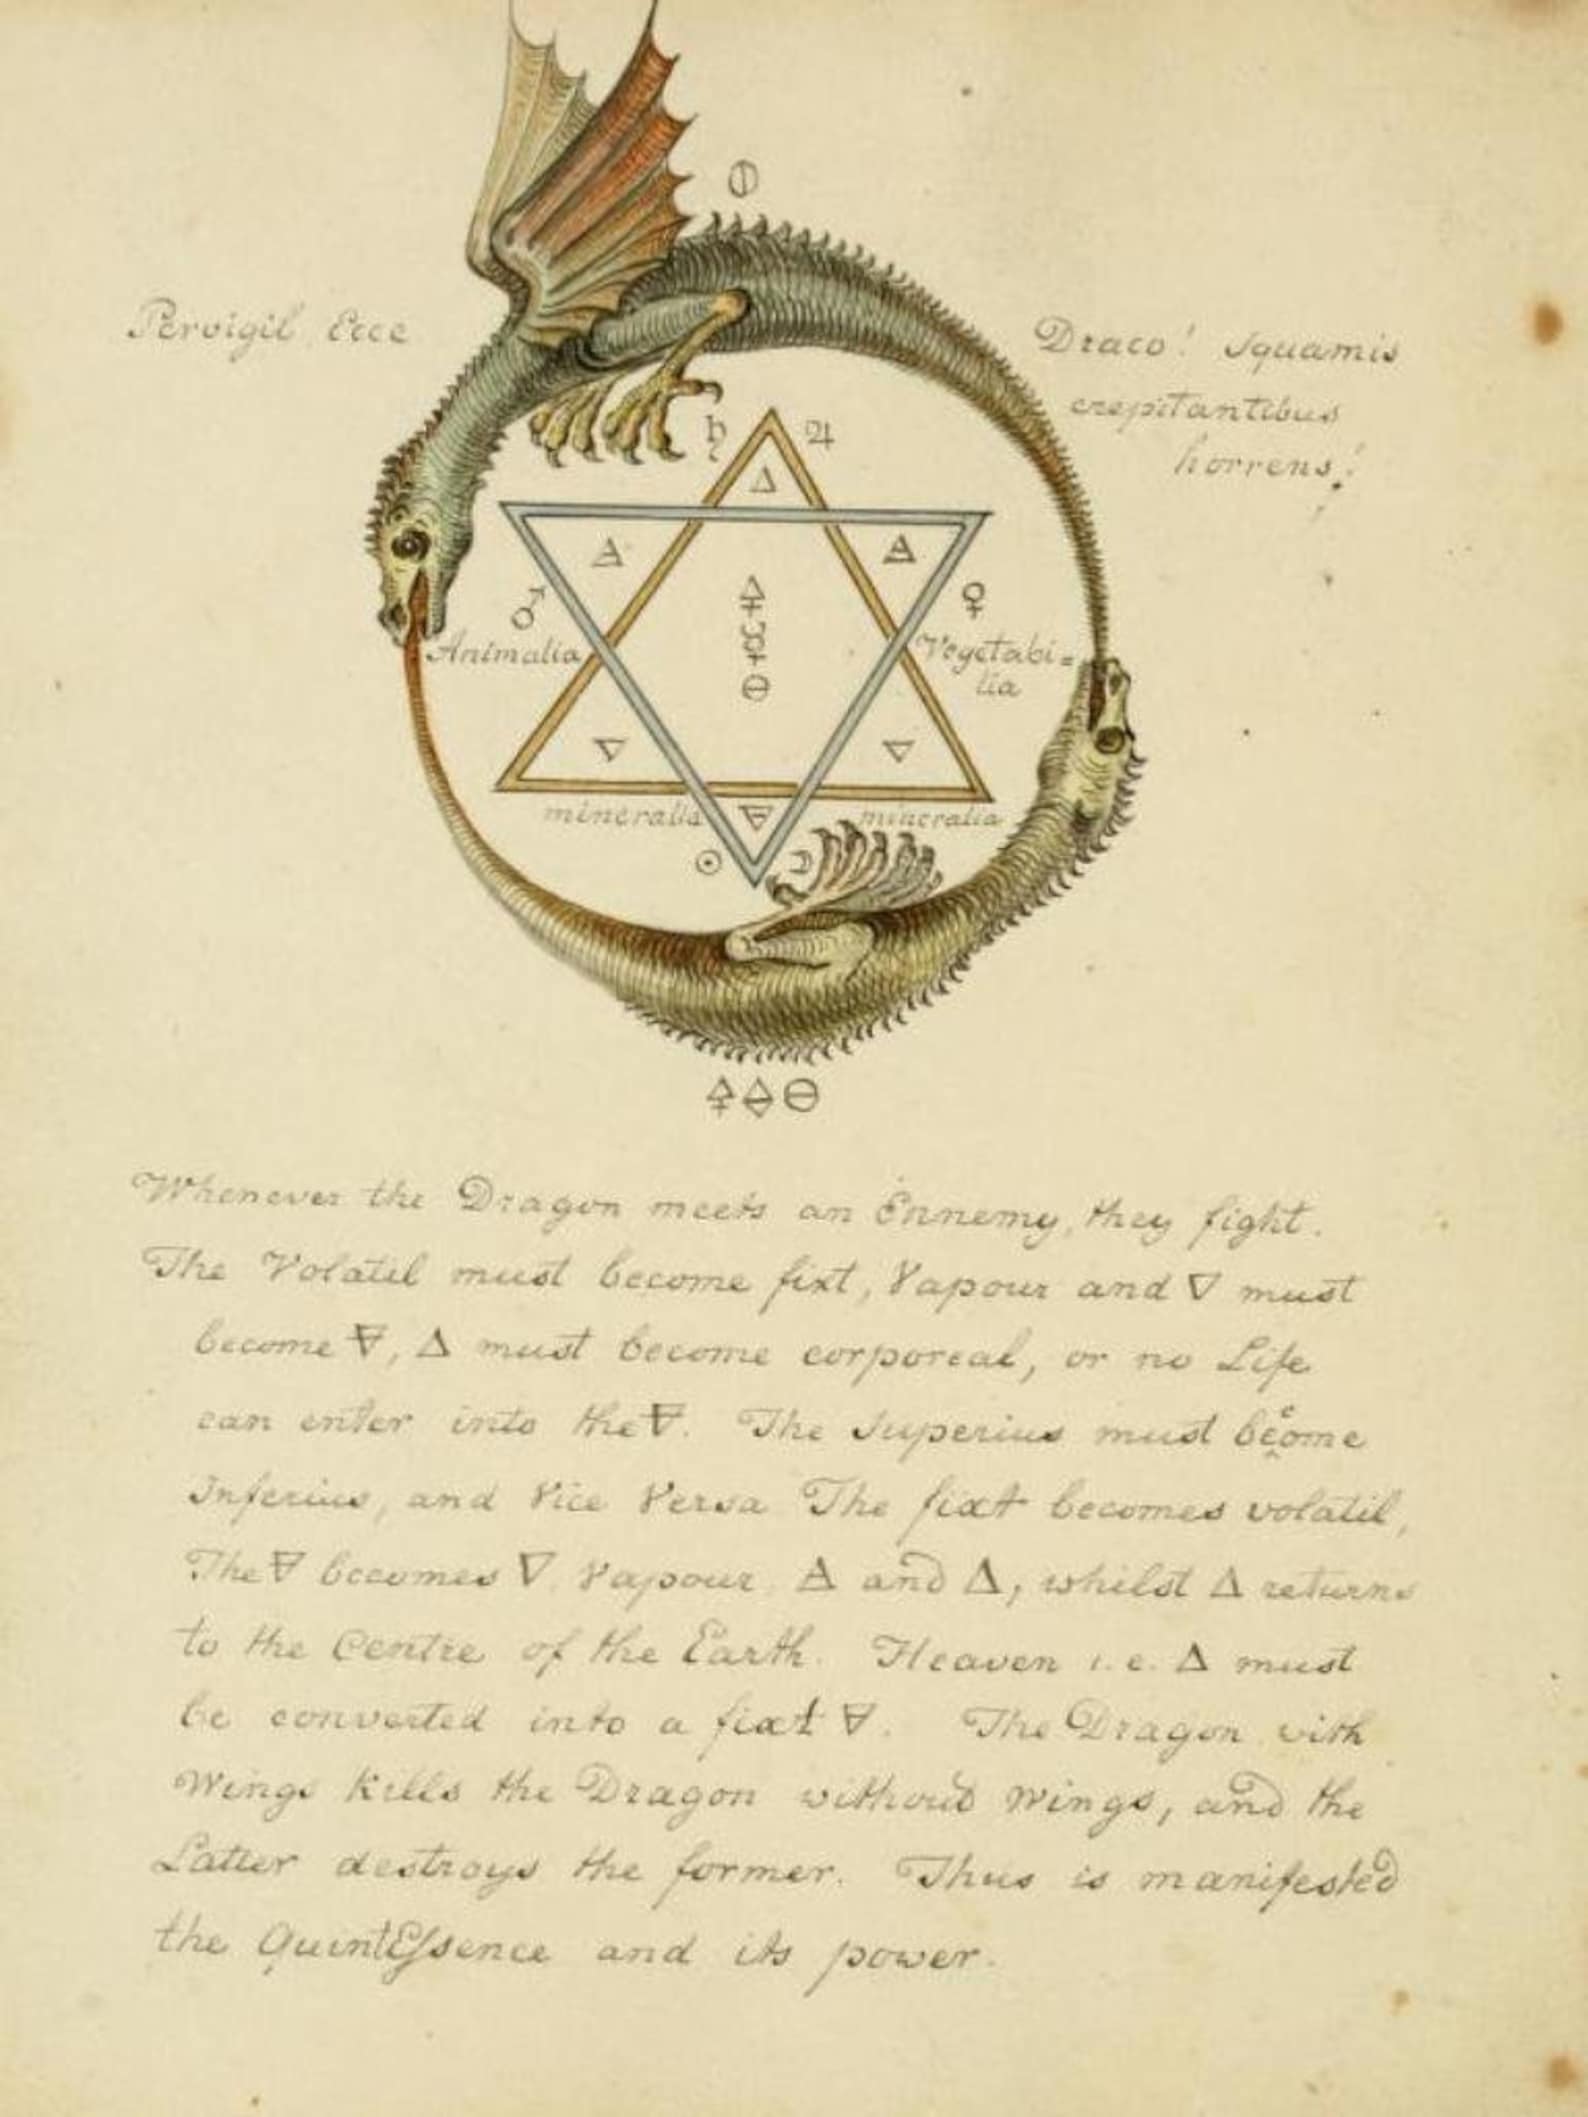 🜕
Pervigil Ecce
Draco! squamis
crepitantibus
horrens!
♄ ♃
🜂
🜁 🜁
🜍
♂ ♀
☿
🜔
Animalia Vegetabi=
lia
🜄 🜄
mineralia 🜃 mineralia
☉ ☽
🜍 🜔
Whenever the Dragon meets an Ennemy, they fight.
The Volatil must become fixt, Vapour and 🜄 must
become 🜃, 🜂 must become corporeal, or no Life
can enter into the 🜃. The Superius must become
Inferius, and Vice Versa The fixt becomes volatil,
The 🜃 becomes 🜄 Vapour, 🜁 and 🜂, whilst 🜂 returns
to the Centre of the Earth. Heaven i.e. 🜂 must
be converted into a fixt 🜃. The Dragon with
Wings kills the Dragon without wings, and the
Latter destroys the former. Thus is manifested
the QuintEſsence and its power.